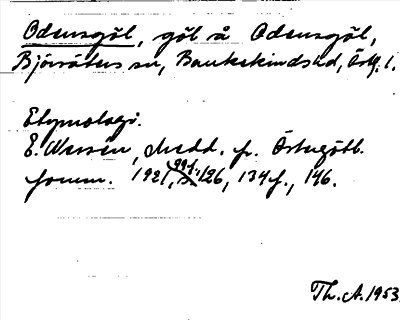 Odensgöl, göl å Odensgöl,
Björsäters sn, Bankekinds hd, Östg. l.
Etymologi.
E. Wessén, Medd. fr. Östergötl.
fornm. 1921, 99 f., 126, 134 f., 146.
Th. A. 1953